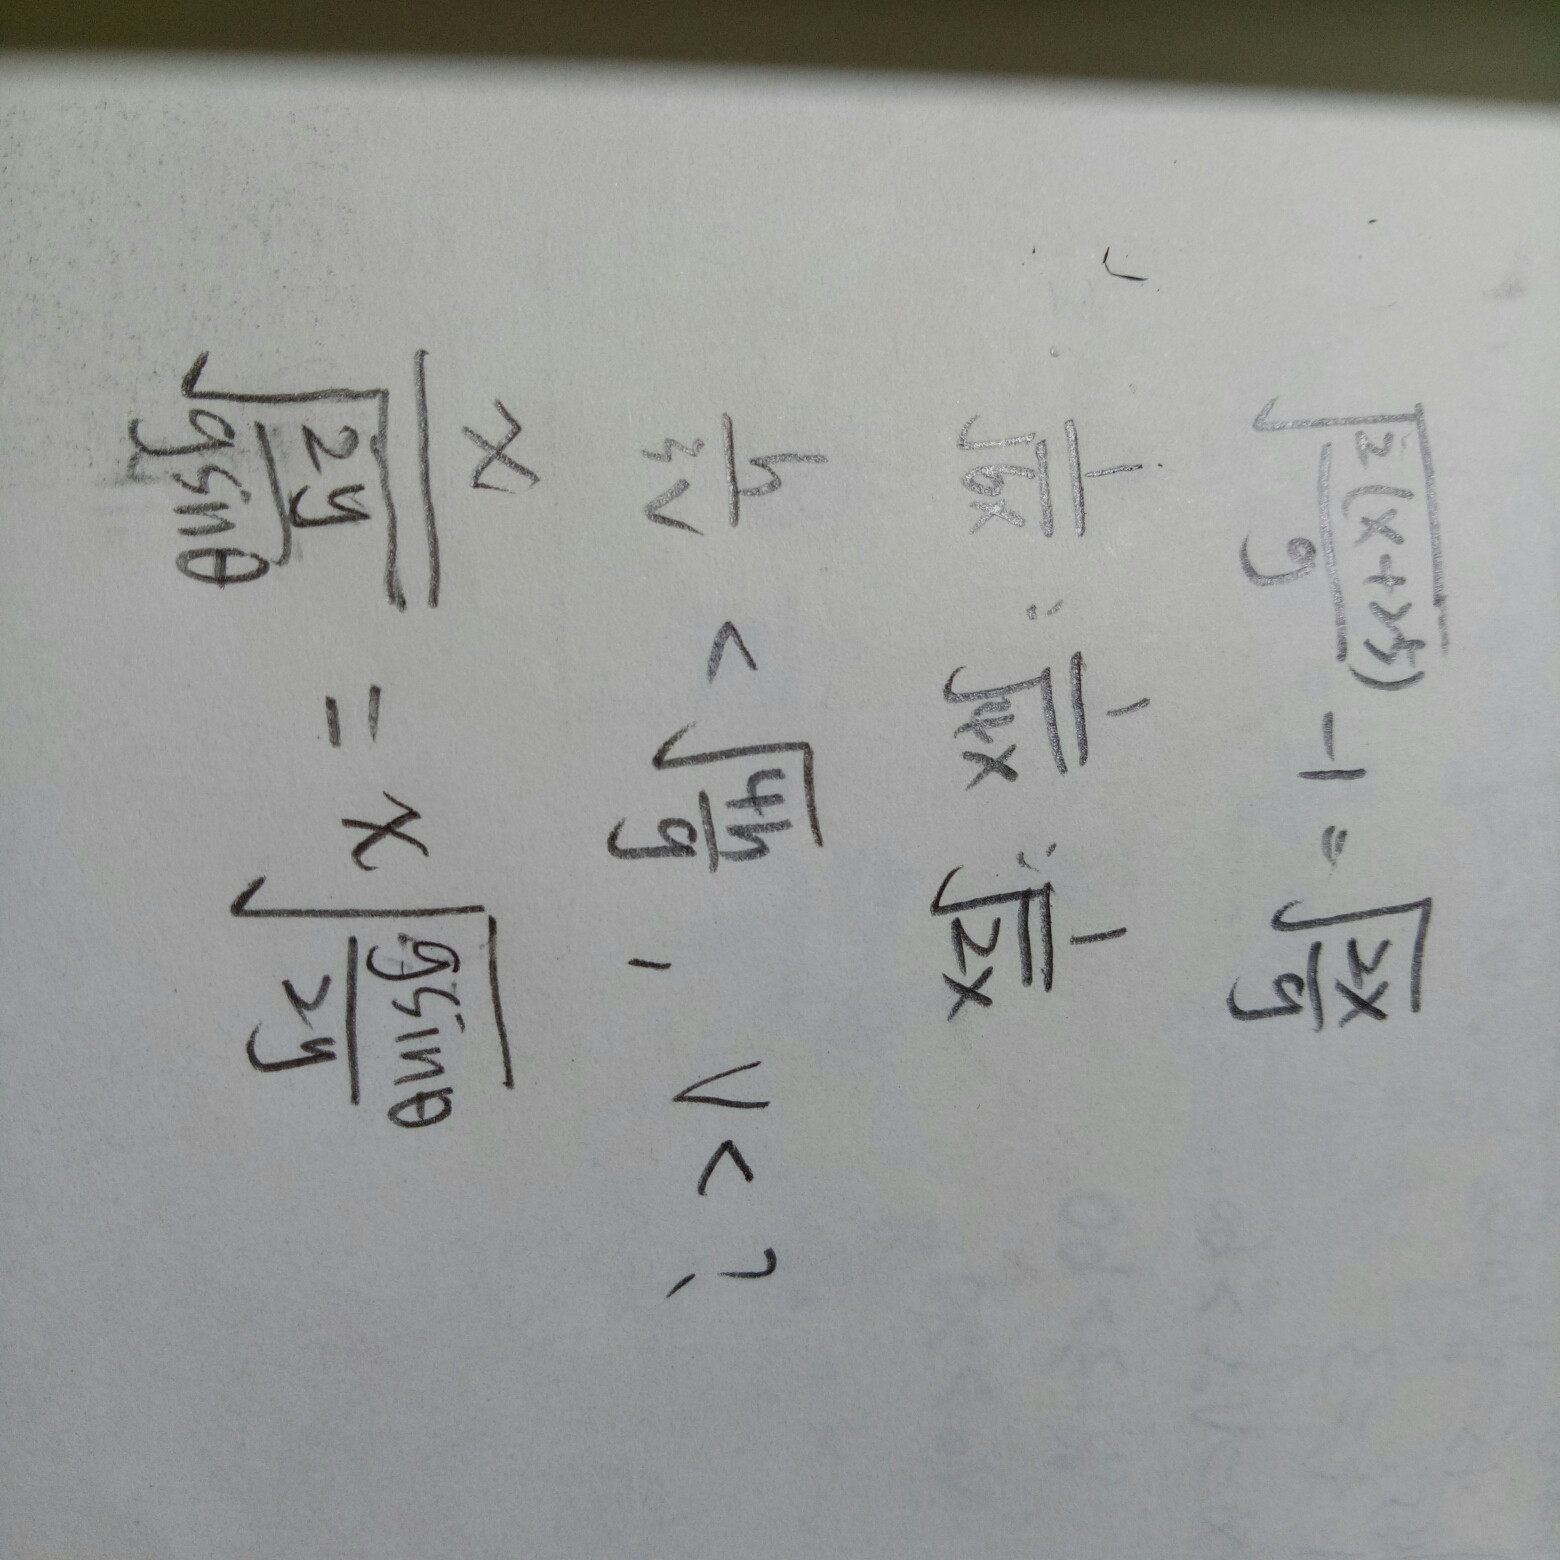 √(2(x+)/g) - 1 = √(2x/g)
1/√6x : 1/√4x : 1/√2x
h/3v < √(4h/g) , v < ?
x/√(2y/gsinθ) = x√(gsinθ/2y)